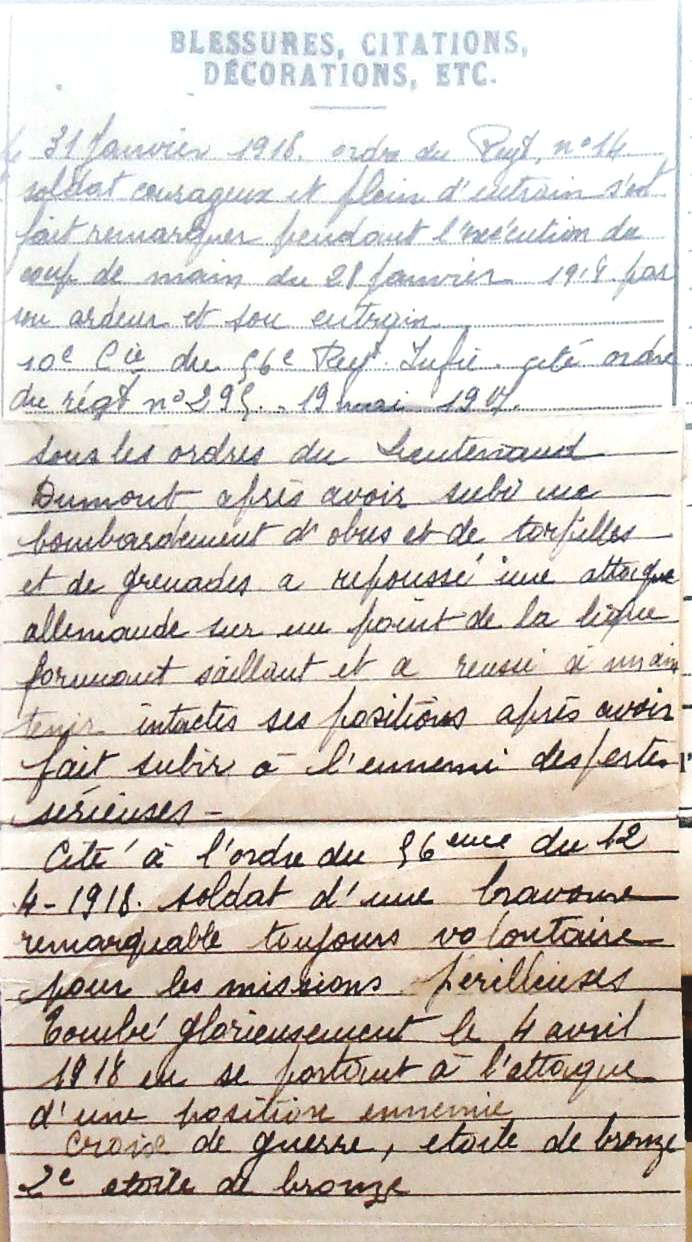 BLESSURES, CITATIONS,
DÉCORATIONS, ETC.
31 Janvier 1918. ordre du Regt, n° 14
soldat courageux et plein d'entrain s'est
fait remarquer pendant l'exécution du
coup de main du 28 Janvier 1918 par
son ardeur et son entrain
10e Cie du 56e Regt Infie cité ordre
du régt n° 295. 19 mai 1917.
sous les ordres du Lieutenand
Dumont après avoir subi une
bombardement d'obus et de torpilles
et de grenades a repoussé une attaque
allemande sur un point de la ligne
formant saillant et a reussi à main
tenir intactes ses positions après avoir
fait subir à l'ennemi des pertes
sérieuses -
Cité à l'ordre du 56eme du 12
4-1918. soldat d'une bravoure
remarquable toujours volontaire
pour les missions périlleuses
Tombé glorieusement le 4 avril
1918 en se portant à l'attaque
d'une position ennemie
Croix de guerre, etoile de bronze
2e etoile de bronze